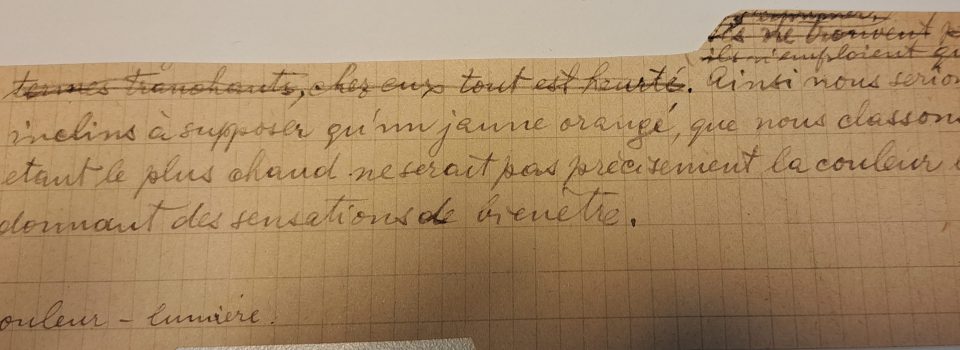 s'exprimer,
ils ne trouvent p
ils n'emploient qu
termes tranchants, chez eux tout est heurté. Ainsi nous serion
inclins à supposer qu'un jaune orangé, que nous classons
etant le plus chaud ne serait pas précisement la couleur
donnant des sensations de bienêtre.
ouleur - lumière.